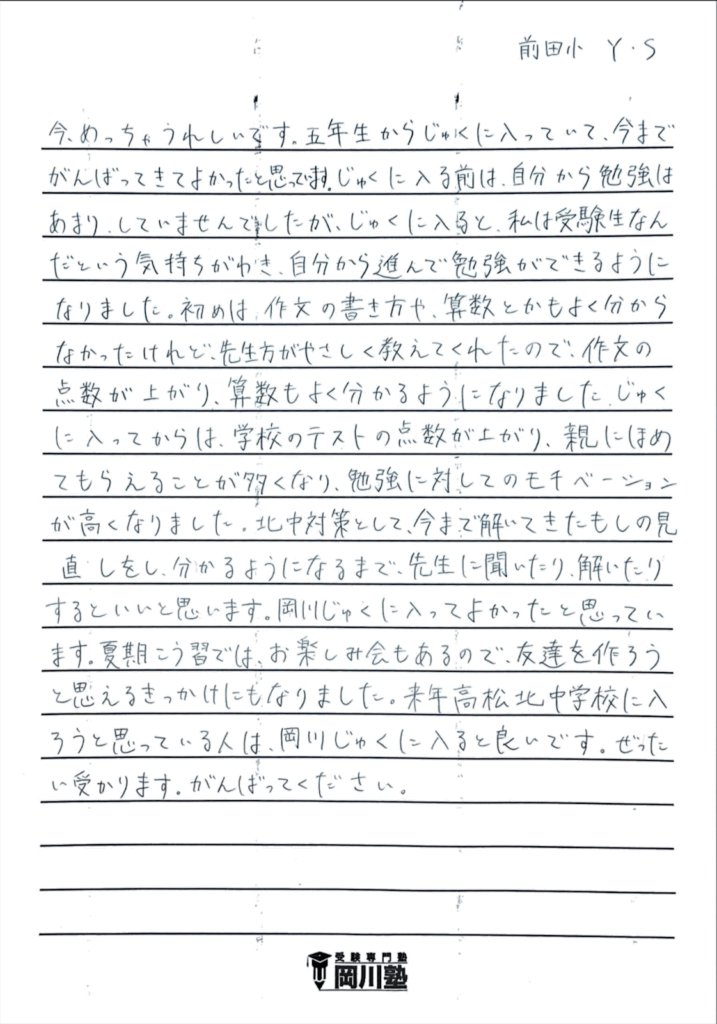 前田小 Y・S
今、めっちゃうれしいです。五年生からじゅくに入っていて、今まで
がんばってきてよかったと思ってます。じゅくに入る前は、自分から勉強は
あまり、していませんでしたが、じゅくに入ると、私は受験生なん
だという気持ちがわき、自分から進んで勉強ができるように
なりました。初めは、作文の書き方や、算数とかもよく分から
なかったけれど、先生方がやさしく教えてくれたので、作文の
点数が上がり、算数もよく分かるようになりました。じゅく
に入ってからは、学校のテストの点数が上がり、親にほめ
てもらえることが多くなり、勉強に対してのモチベーション
が高くなりました。北中対策として、今まで解いてきたもしの見
直しをし、分かるようになるまで、先生に聞いたり、解いたり
するといいと思います。岡川じゅくに入ってよかったと思ってい
ます。夏期こう習では、お楽しみ会もあるので、友達を作ろう
と思えるきっかけにもなりました。来年高松北中学校に入
ろうと思っている人は、岡川じゅくに入ると良いです。ぜった
い受かります。がんばってください。
受験専門塾
岡川塾